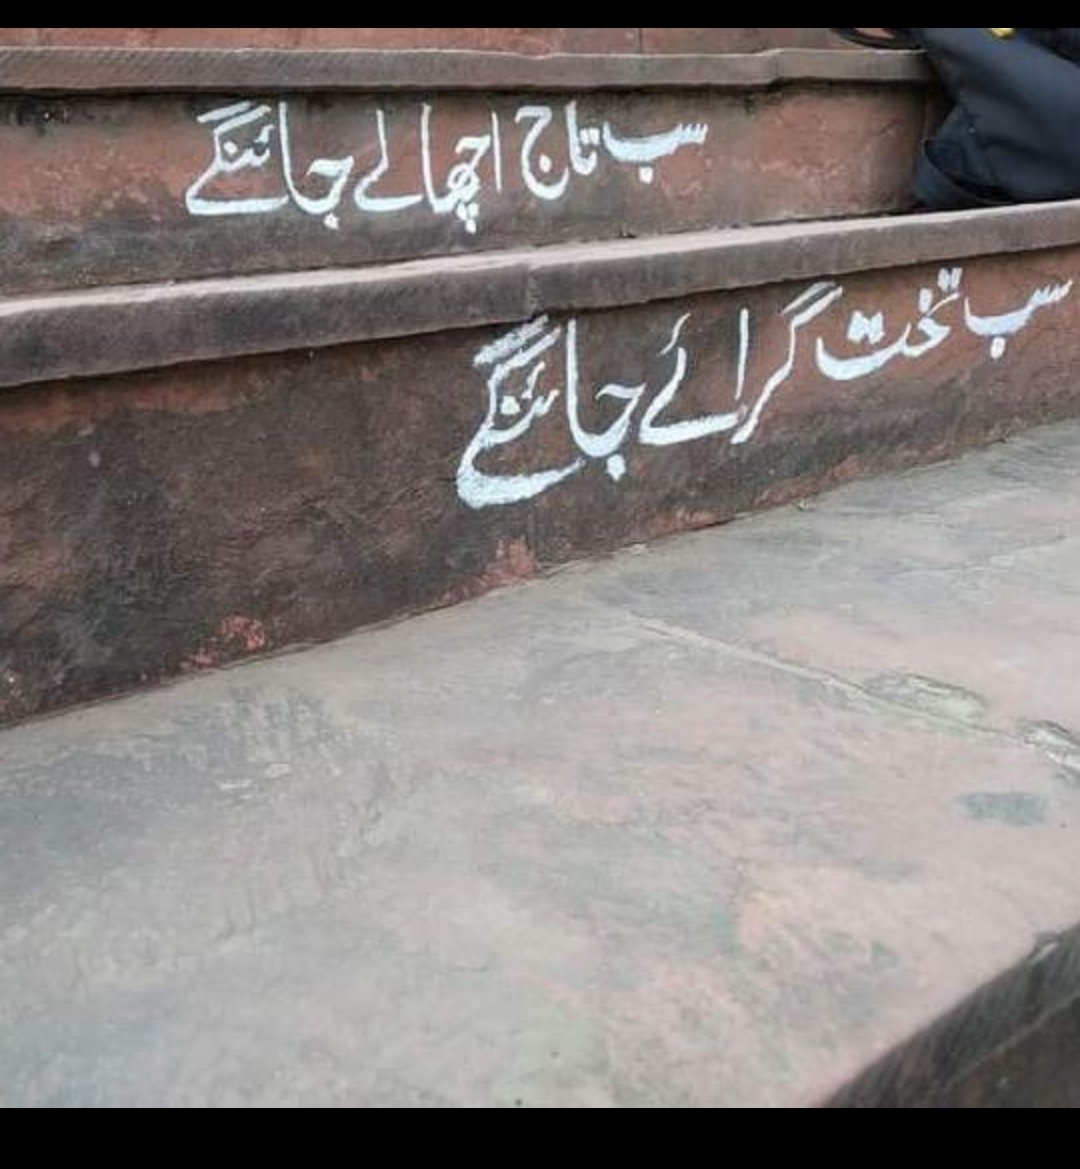 سب تاج اچھالے جائنگے
سب تخت گرائے جائنگے